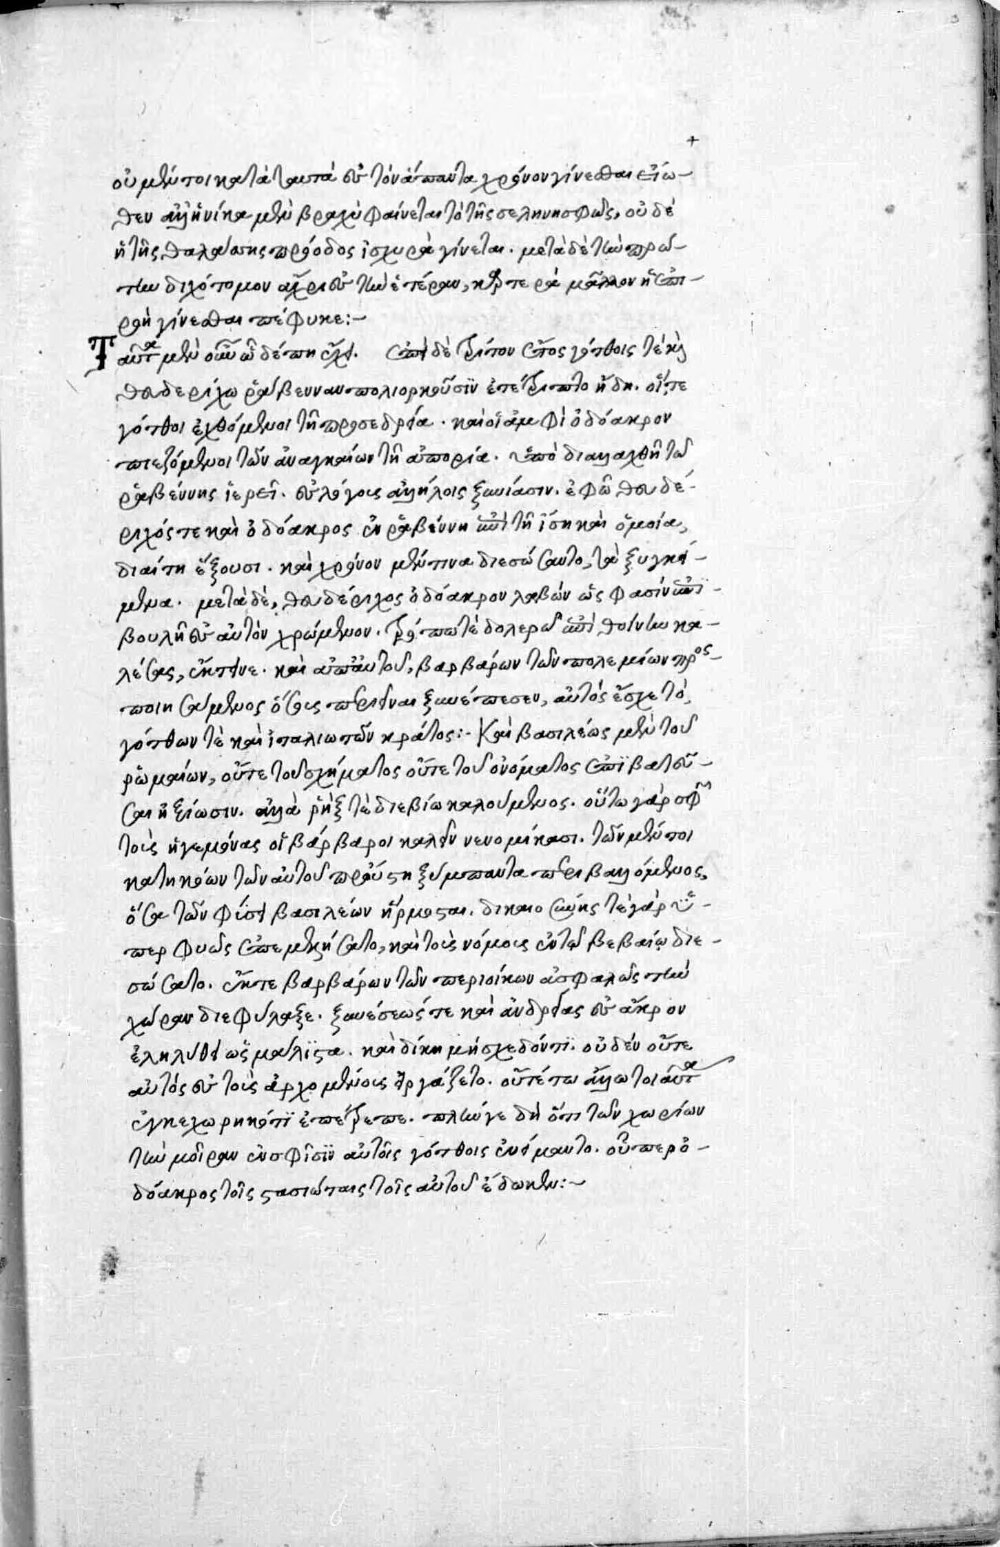 οὐ μέντοι κατὰ ταυτὰ ἐς τὸν ἅπαντα χρόνον γίνεσθαι εἴω-
θεν ἀλλ' ἡνίκα μὲν βραχὺ φαίνεται τὸ τῆς σελήνης φῶς, οὐδὲ
ἡ τῆς θαλάσσης πρόοδος ἰσχυρὰ γίνεται. μετὰ δὲ τὴν πρώ-
την διχότομον ἄχρι ἐς τὴν ἑτέραν, καρτερὰ μᾶλλον ἡ ἐπι-
ρροὴ γίνεσθαι πέφυκε:-
Ταῦτα μὲν οὖν ὧδέ πη ἔχει. ἐπεὶ δὲ τρίτον ἔτος γότθοις τὲ καὶ
θευδερίχω ῥάβενναν πολιορκοῦσιν ἐτέτριπτο ἤδη. οἵ τε
γότθοι ἀχθόμενοι τῆ προσεδρία. καὶ οἱ ἀμφὶ ὀδόακρον
πιεζόμενοι τῶν ἀναγκαίων τῆ ἀπορία. ὑπὸ διαλλαχθῆ τῶ
ῥαβέννης ἱερεῖ. ἐς λόγους ἀλλήλοις ξυνίασιν. ἐφ' ὧ θευδέ-
ριχός τε καὶ ὀδόακρος ἐν ῥαβέννη ἐπὶ τῆ ἴση καὶ ὁμοία,
διαίτη ἕξουσι. καὶ χρόνον μέν τινα διεσώσαντο, τὰ ξυγκεί-
μενα. μετὰ δὲ, θευδέριχος ὀδόακρον λαβὼν ὥς φασιν ἐπι-
βουλῆ ἐς αὐτὸν χρώμενον. τρόπω τὲ δολερῶ ἐπὶ θοίνην κα-
λέσας, ἔκτεινε. καὶ ἀπ' αὐτοῦ, βαρβάρων τῶν πολεμίων προσ-
ποιησάμενος ὅσους περιεῖναι ξυνέπεσεν, αὐτὸς ἔσχε τὸ,
γότθων τὲ καὶ ἰταλιωτῶν κράτος:- Καὶ βασιλέως μὲν τοῦ
ῥωμαίων, οὔτε τοῦ σχήματος οὔτε τοῦ ὀνόματος ἐπιβατεῦ-
σαι ἠξίωσιν. ἀλλὰ ῥὴξ τὲ διεβίω καλούμενος. οὕτω γὰρ σφῶν
τοὺς ἡγεμόνας οἱ βάρβαροι καλεῖν νενομίκασι. τῶν μέντοι
κατηκόων τῶν αὐτοῦ προὔστη ξύμπαντα περιβαλλόμενος,
ὅσα τῶν φύσει βασιλέων ἥρμοσται. δικαιοσύνης τὲ γὰρ ὑ-
περφυῶς ἐπεμελήσατο, καὶ τοὺς νόμους ἐν τῶ βεβαίω διε-
σώσατο. ἔκ τε βαρβάρων τῶν περιοίκων ἀσφαλῶς τὴν
χώραν διεφύλαξε. ξυνέσεώς τε καὶ ἀνδρίας ἐς ἄκρον
ἐληλύθει ὡς μάλιστα. καὶ ἀδίκημα σχεδόν τι. οὐδὲν οὔτε
αὐτὸς ἐς τοὺς ἀρχομένους εἰργάζετο. οὔτέ τω ἄλλω τοιαῦτα
ἐγκεχωρηκότι ἐπέτρεπε. πλήν γε δὴ ὅτι τῶν χωρίων
τὴν μοῖραν ἐν σφίσιν αὐτοῖς γότθοις ἐνείμαντο. οὗπερ ὀ-
δόακρος τοῖς στασιώταις τοῖς αὐτοῦ ἔδωκεν:-